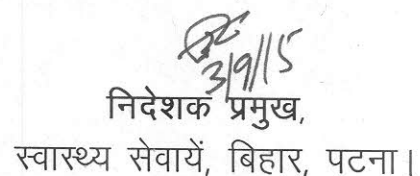 3/9/15
निदेशक प्रमुख,
स्वास्थ्य सेवायें, बिहार, पटना।